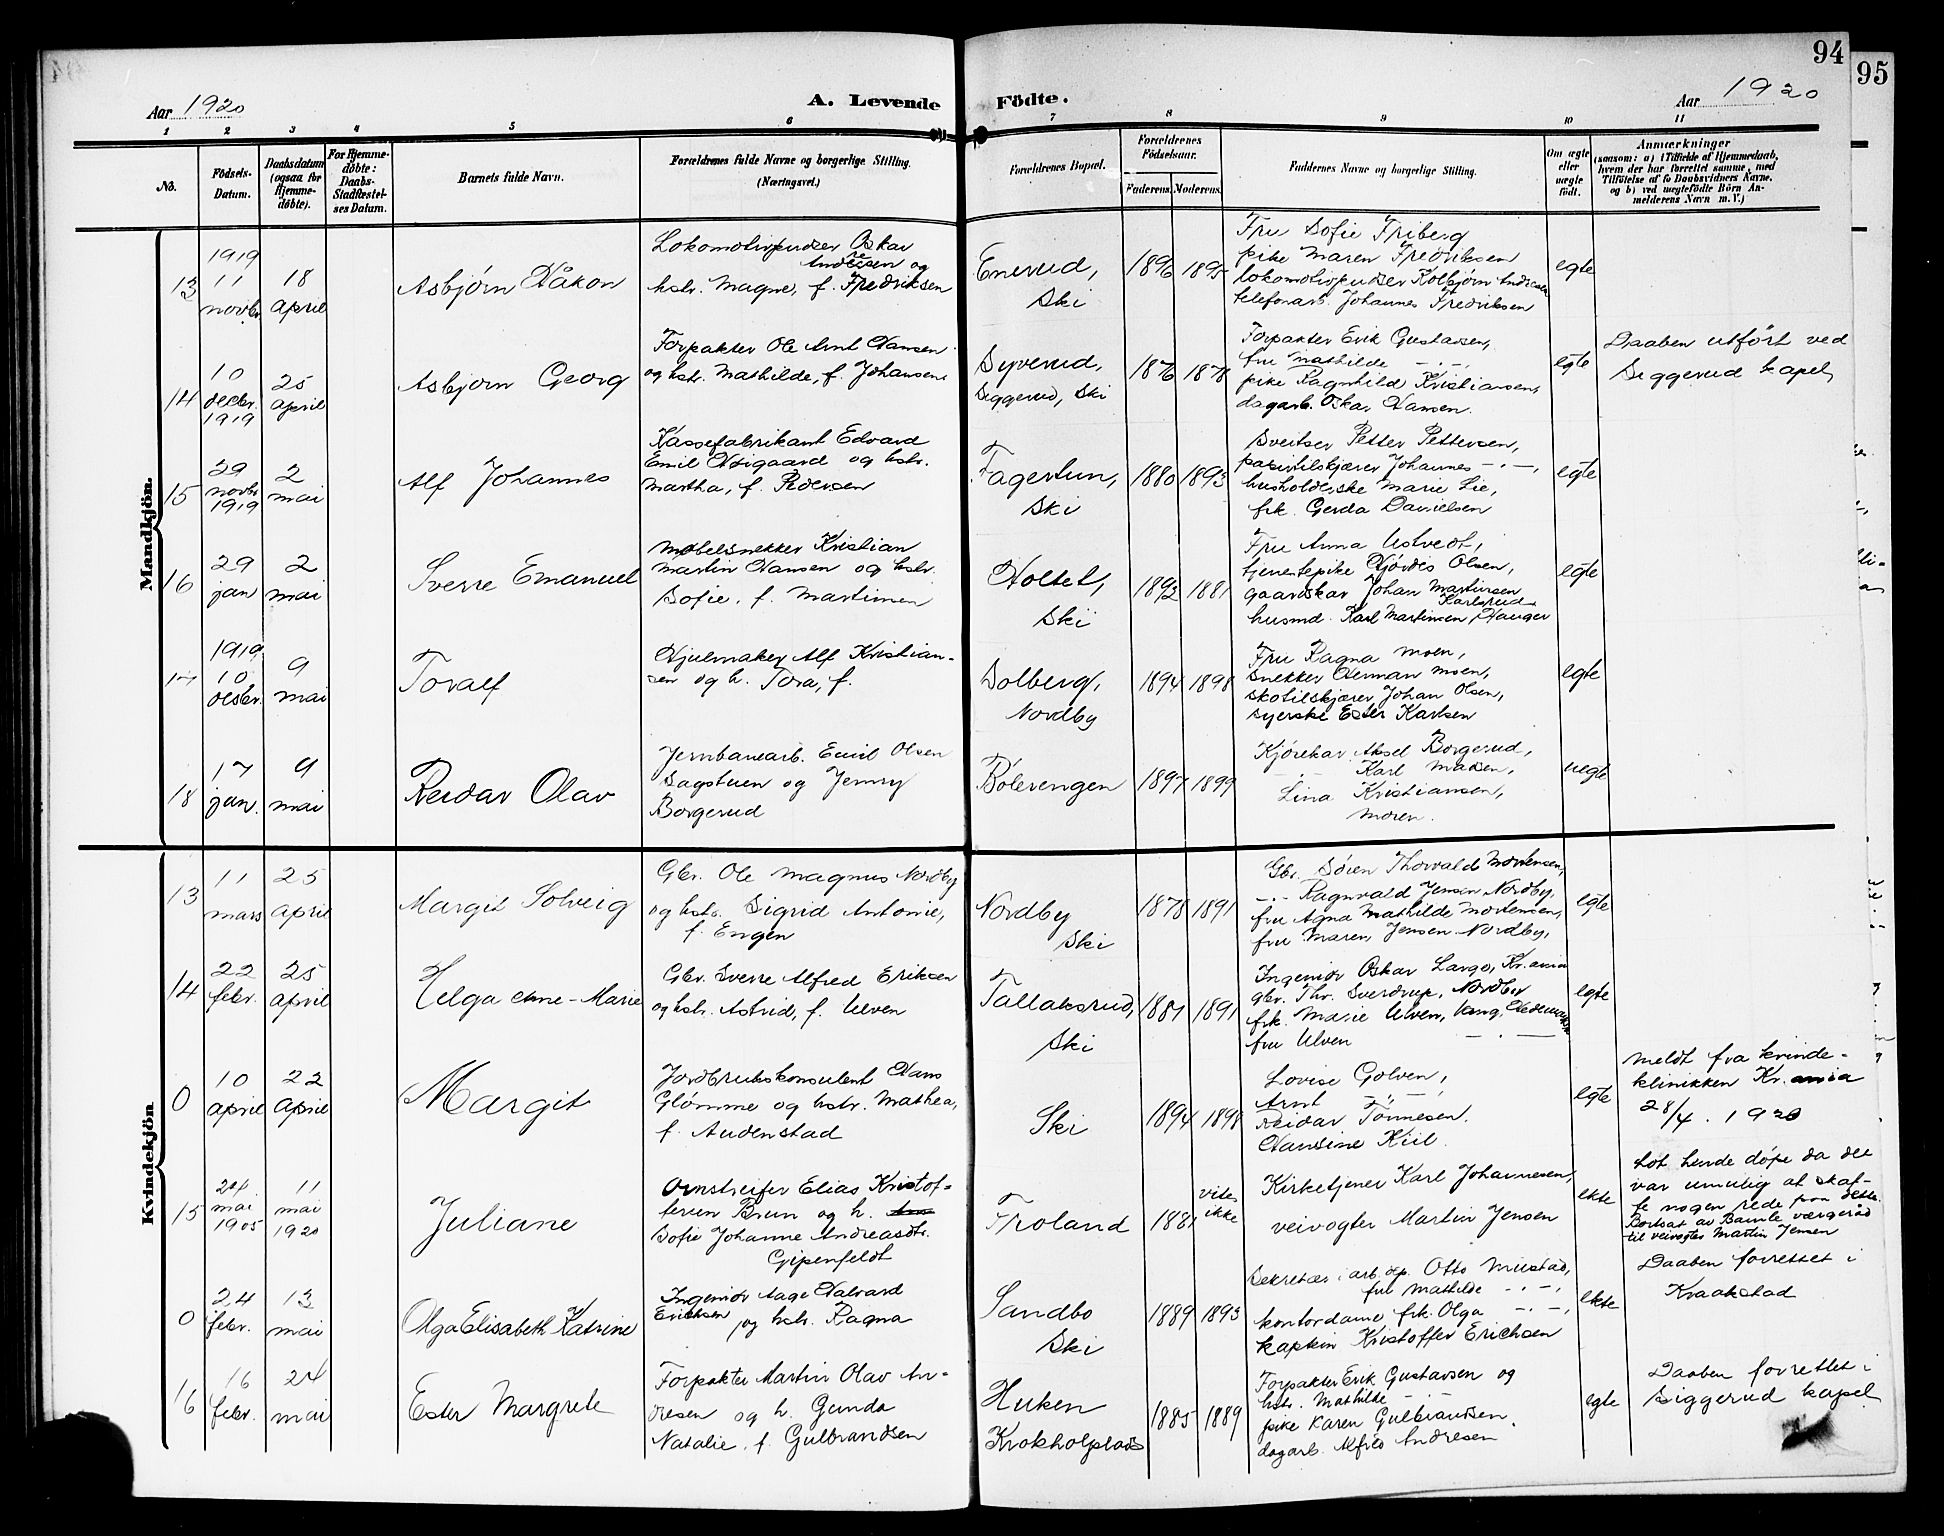 94
95
Aar 1920
A. Levende Födte.
Aar 1920
1 2 3 4 5 6 7 8 9 10 11
No.
Födsels-Datum.
Daabsdatum (ogsaa for Hjemme-døbte).
For Hjemme-døbte: Daabs-Stadfæstel-ses Datum.
Barnets fulde Navn.
Forældrenes fulde Navne og borgerlige Stilling.
(Næringsvei.)
Forældrenes Bopæl.
Forældrenes Födselsaar.
Faderens. Moderens.
Faddernes Navne og borgerlige Stilling.
Om ægte eller uægte födt.
Anmærkninger
(saasom: a) i Tilfælde af Hjemmedaab, hvem der har forrettet samme, med Tilføielse af to Daabsvidners Navne, og b) ved uægtefødte Börn An-melderens Navn m. V.)
Mandkjön.
13
1919
11
novbr.
18
april
Asbjørn Håkon
Lokomotivpudser Oskar
Andresen og
hstr. Magne, f. Fredriksen
Enerud,
Ski
1896 1895
Fru Sofie Friberg
pike Maren Fredriksen
lokomotivpudser Kolbjørn Andresen
telefonarb. Johannes Fredriksen
egte
14
10
decbr.
1919
25
april
Asbjørn Georg
Forpakter Ole Arnt Hansen
og hstr. Mathilde, f. Johansen
Syverud,
Siggerud, Ski
1876 1878
Forpakter Erik Gustavsen,
fru Mathilde -"-,
pike Ragnhild Kristiansen,
dagarb. Oskar Hansen.
egte
Daaben utført ved
Siggerud kapel,
15
29
novbr
1919
2
mai
Alf Johannes
Kassefabrikant Edvard
Emil Høigaard og hstr.
Martha, f. Pedersen
Fagertun,
Ski
1880 1893
Sveitser Petter Pettersen,
papirtilskjærer Johannes -"-,
husholderske Marie Lie,
frk. Gerda Danielsen
egte
16
29
jan
2
mai
Sverre Emanuel
Møbelsnekker Kristian
Martin Hansen og hstr.
Sofie, f. Martinsen
Holtet,
Ski
1892 1881
Fru Anna Ustvedt,
tjenestepike Hjørdis Olsen,
gaardskar Johan Martinsen
Karlsrud
husmd. Karl Martinsen, Hauger
egte
17
1919
10
decbr.
9
mai
Toralf
Hjulmaker Alf Kristian-
sen og h. Tora, f.
Solberg,
Nordby
1894 1898
Fru Ragna Moen,
snekker Herman Moen,
skotilskjærer Johan Olsen,
syerske Ester Karlsen
egte
18
17
jan.
9
mai
Reidar Olav
Jernbanearb. Emil Olsen
Sagstuen og Jenny
Borgerud
Bølerengen
1897 1899
Kjørekar Aksel Borgerud,
-"- Karl Madsen,
Lina Kristiansen,
Moren.
uegte
Kvindekjön
13
11
mars
25
april
Margit Solveig
Gbr. Ole Magnus Nordby
og hstr. Sigrid Antonie,
f. Engen
Nordby
Ski
1878 1891
Gbr. Søren Thorvald Mortensen,
-"- Ragnvald Jensen Nordby,
fru Agna Mathilde Mortensen,
fru Maren Jensen Nordby,
egte
14
22
febr.
25
april
Helga Anne-Marie
Gbr. Sverre Alfred Eriksen
og hstr. Astrid, f. Ulven
Tallaksrud,
Ski
1881 1891
Ingeniør Oskar Lange, Kr.ania
gbr. Thr. Sverdrup, Nordby
frk. Marie Ulven, Vang, Hedemarken
fru Ulven -"-
egte
0
10
april
22
april
Margit
Jordbrukskonsulent Hans
Glømme og hstr. Mathea,
f. Audenstad
Ski
1894 1898
Lovise Golven,
Arnt -"-,
Reidar Tønnesen.
Hansine Kiil.
egte
Meldt fra kvinde-
klinikken Kr.ania
28/4. 1920
15
24
mai
1905
11
mai
1920
Juliane
Omstreifer Elias Kristof-
fersen Brun og h.
Sofie Johanne Andreasdtr.
Gipenfeldt
Froland
1881
vites
ikke
Kirketjener Karl Johannesen,
veivogter Martin Jensen
ekte
Lot hende døpe da det
var umulig at skaf-
fe nogen rede paa dette.
Bortsat av Bamle værgeråd
til veivogter Martin Jensen
0
24
febr.
13
mai
Olga Elisabeth Katrine
Ingeniør Aage Halvard
Erichsen og hstr. Ragna
Sandbo
Ski
1889 1893
Sekretær i arb.dep. Otto Mustad,
fru Mathilde -"-,
kontordame frk. Olga -"-,
kaptein Kristoffer Erichsen
ekte
Daaben forrettet i
Kraakstad
16
16
febr.
24
mai
Ester Margrete
Forpakter Martin Olav An-
dresen og h. Gunda
Natalie, f. Gulbrandsen
Huken
Krokholplads
1885 1889
Forpakter Erik Gustavsen og
hstr. Mathilde -"-
pike Karen Gulbrandsen.
dagarb. Alfred Andresen
egte
Daaben forrettet i
Siggerud kapel